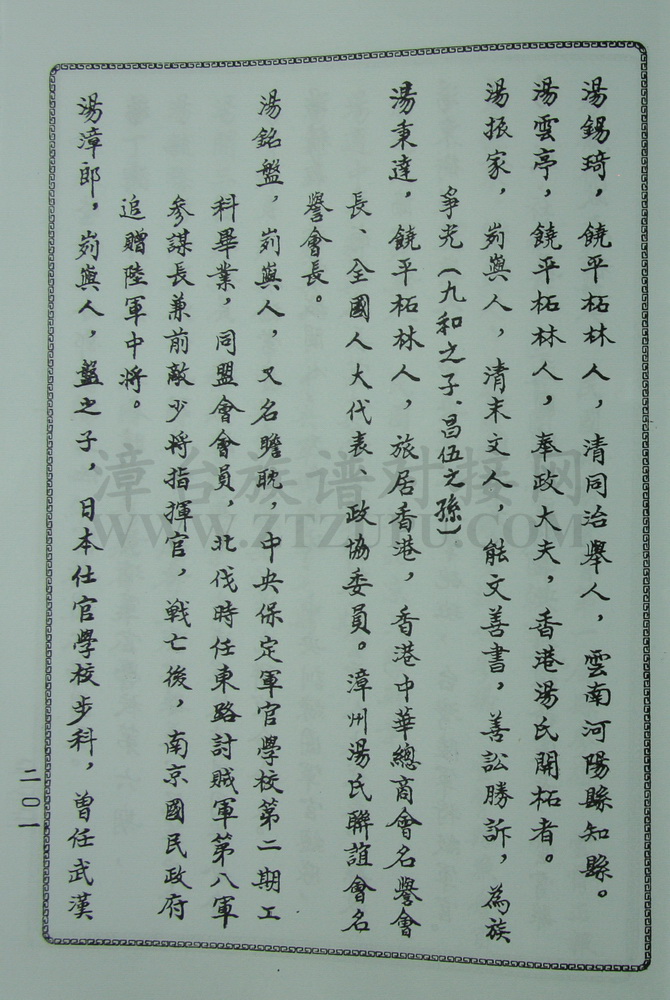 湯錫琦，饒平柘林人，清同治舉人，雲南河陽縣知縣。
湯雲亭，饒平柘林人，奉政大夫，香港湯氏開柘者。
湯振家，峛嶼人，清末文人，能文善書，善訟勝訴，為族
爭光（九和之子、昌伍之孫）
湯秉達，饒平柘林人，旅居香港，香港中華總商會名譽會
長、全國人大代表、政協委員。漳州湯氏聯誼會名
譽會長。
湯銘盤，峛嶼人，又名瞻耽，中央保定軍官學校第二期工
科畢業，同盟會會員，北伐時任東路討賊軍第八軍
參謀長兼前敵少將指揮官，戰亡後，南京國民政府
追贈陸軍中將。
湯漳郎，峛嶼人，盤之子，日本仕官學校步科，曾任武漢
二〇一
漳台族谱对接网
WWW.ZTZUPU.COM